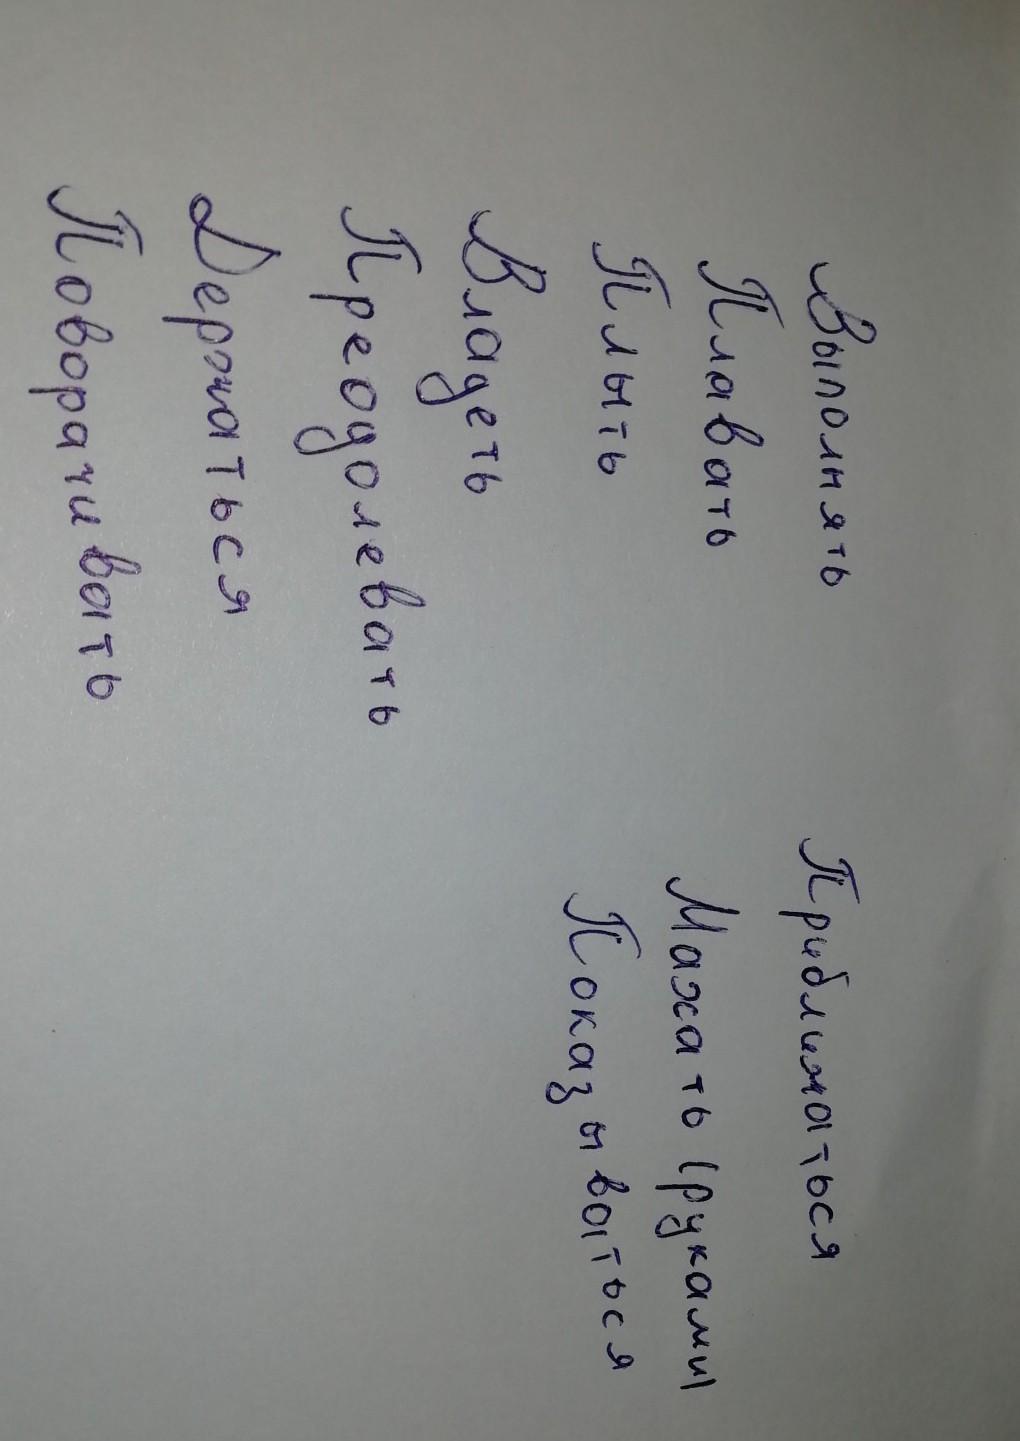 Выполнять
Плавать
Плыть
Владеть
Преодолевать
Держаться
Поворачивать
Приближаться
Мажать (руками)
Показываться